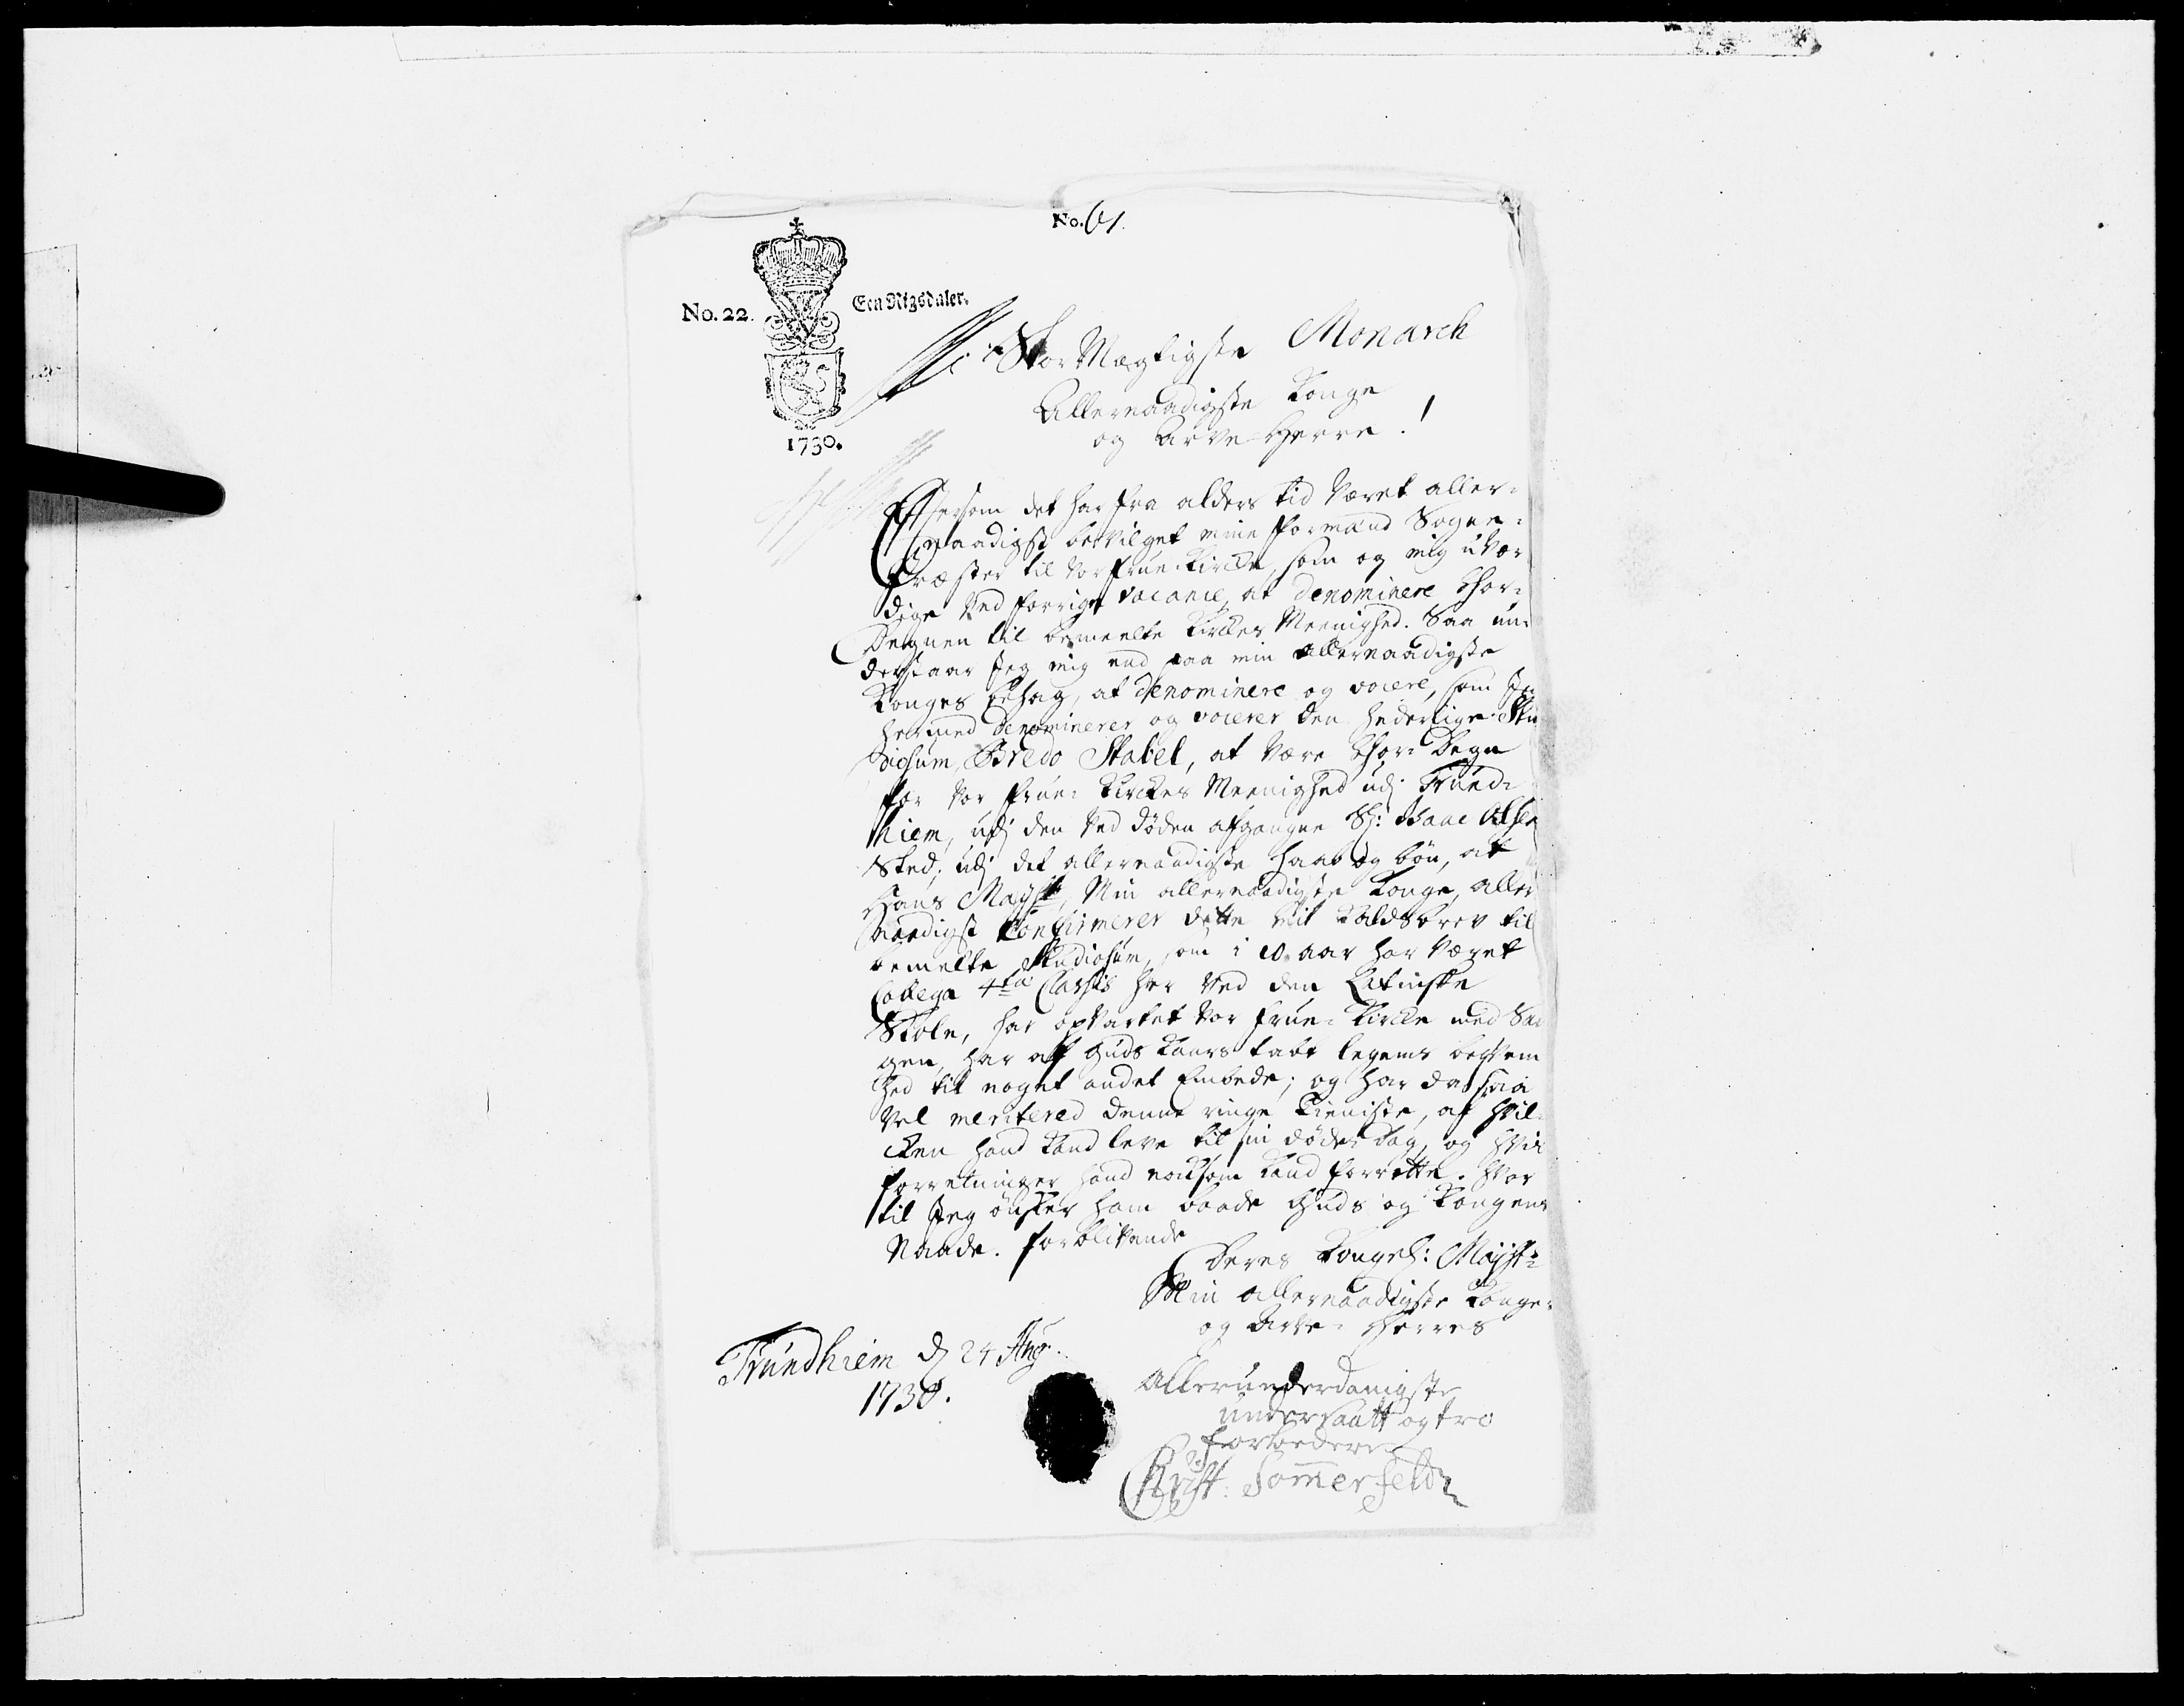 No. 61.
No. 22.
Een Rigsdaler.
1730.
Stor Mægtigste Monarch
Allernaadigste Konge
og Arve-Herre!
Eftersom det har fra alders tid været aller-
naadigst bevilget mine Formænd Sogne-
Præster til Vor Frue Kircke, som og mig uvær
dige ved forrige vacance, at denominere Chor-
Degnen til bemeelte Kirckes Meenighed. Saa un-
derstaar Jeg mig end paa min allernaadigste
Konges behag, at denominere og vocere, som Jeg
hermed denominerer og vocerer den hederlige Stu
diosum, Bredo Stabel, at være Chor-Degn
for Vor Frue Kirckes Meenighed udj Trund-
hiem, udj den ved døden afgangne Sl: Isaac Olsen
Sted; udj det allernaadigste haab og bøn, at
Hans Mayst, Min allernaadigste Konge, aller
naadigst Confirmerer dette mit Kaldsbrev til
bemelte Studiosum, som i 10. aar har været
Collega 4ta Classis her ved den Latinske
Skole, har opvartet Vor Frue Kircke med San
gen, har af Guds Kaars tabt legems beqvem
hed til noget andet Embede; og har da saa
vel meritered denne ringe tieniste, af hvil-
cken hand kand leve til sin døde dag, og hvis
forretninger hand noksom kand forrette. Hvor
til Jeg ønsker ham baade Guds og Kongens
Naade. Forblivende
Deres Kongel: Mayst:
Min allernaadigste Konges
og Arve-Herres
Trundhiem d. 24 Aug.
1730.
Allerunderdanigste
undersaatt og tro
forbedere
Christ: Sommerfeldt